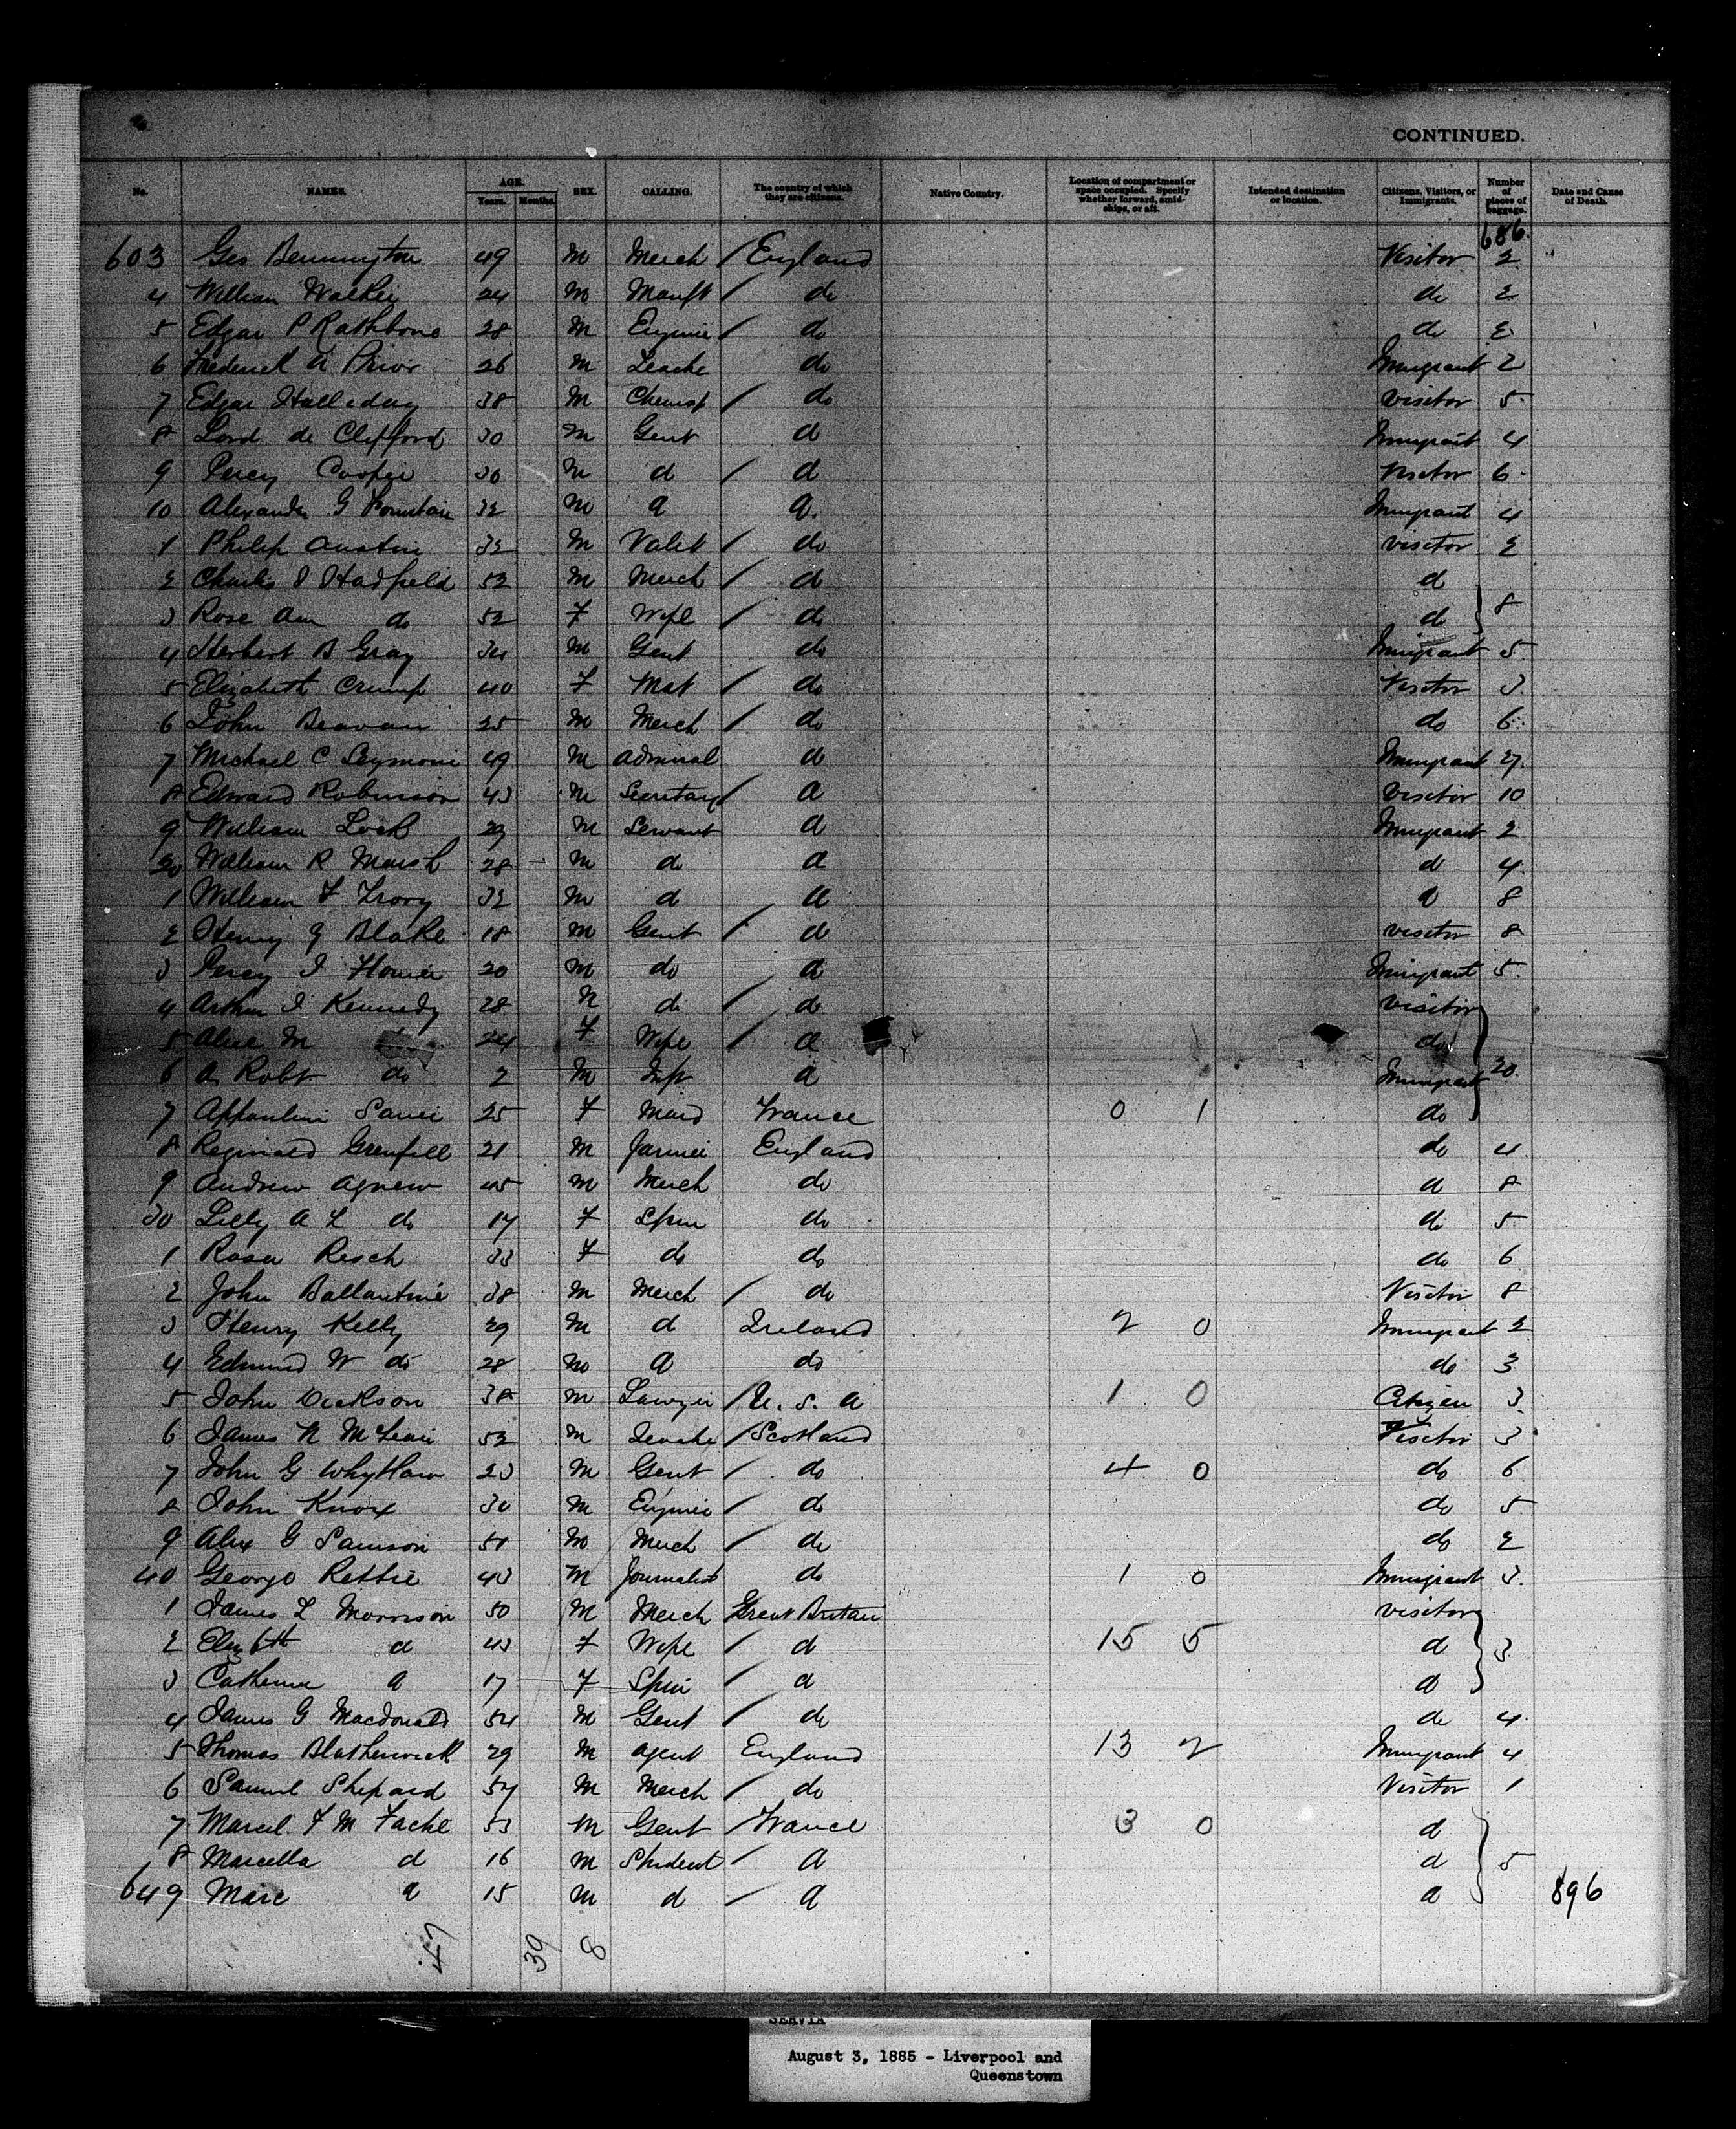 CONTINUED.
No. NAMES. AGE. Years. Months. SEX. CALLING. The country of which they are citizens. Native Country. Location of compartment or space occupied. Specify whether forward, amidships, or aft. Intended destination or location. Citizens, Visitors, or Immigrants. Number of pieces of baggage. Date and Cause of Death.
686.
603 Geo Bennington 49 M Merch / England Visitor 2
4 William Walker 24 M Manft / do do 2
5 Edgar P Rathbone 28 M Enginee / do do 2
6 Frederick A Prior 26 M Teache do Immigrant 2
7 Edgar Halleday 38 M Chemist / do visitor 5
8 Lord de Clifford 30 M Gent d Immigrant 4
9 Percy Cooper 30 M d / d Visitor 6
10 Alexander G Fountain 32 M d d Immigrant 4
1 Philip Austin 32 M Valet / do visitor 2
2 Charles J Hadfield 52 M Merch / do d
3 Rose Ann do 52 F Wife / do d 8
4 Herbert B Gray 34 M Gent do Immigrant 5
5 Elizabeth Crump 40 F Mat / do Visitor 3
6 John Beavan 25 M Merch / do do 6
7 Michael C Seymour 49 M Admiral do Immigrant 27
8 Edward Robinson 43 M Secretary / d Visitor 10
9 William Lock 29 M Servant d Immigrant 2
20 William R Marsh 28 M d d d 4
1 William F 32 M d d d 8
2 Henry G Blake 18 M Gent / d visitor 8
3 Percy J 20 M do d Immigrant 5
4 Arthur J Kennedy 28 M do / do visitor
5 Alice M 24 F Wife / d do
6 A Robt do 2 M Inft d Immigrant 20
7 25 F Maid France 0 1 do
8 Reginald Grenfell 21 M Farmer England do 4
9 Andrew Agnew 45 M Merch do d 8
30 Lilly A L do 17 F Spin do do 5
1 Rosa Resch 33 F do do do 6
2 John Ballantine 38 M Merch / do Visitor 8
3 Henry Kelly 29 M d Ireland 2 0 Immigrant 2
4 Edmund W do 28 M d do do 3
5 John Dickson 38 M Lawyer / U. S. A 1 0 Citizen 3
6 James N McLean 52 M Teache / Scotland Visitor 3
7 John G Whytlaw 23 M Gent / do 4 0 do 6
8 John Knox 30 M Enginee / do do 5
9 Alex G Samson 51 M Merch / do do 2
40 George Rettie 43 M Journalist do 1 0 Immigrant 3
1 James L Morrison 50 M Merch Great Britain visitor
2 Elizbth d 43 F Wife / d 15 5 d 3
3 Catherine d 17 F Spin / d d
4 James G Macdonald 54 M Gent / do do 4
5 Thomas Blatherwick 29 M Agent England 13 2 Immigrant 4
6 Samuel Shepard 57 M Merch / do Visitor 1
7 Marcel F M Fache 53 M Gent / France 3 0 d
8 Marcella d 16 M Student / d d 5
649 Marc d 15 M d / d d 896
47 39 8
SERVIA
August 3, 1885 - Liverpool and
Queenstown